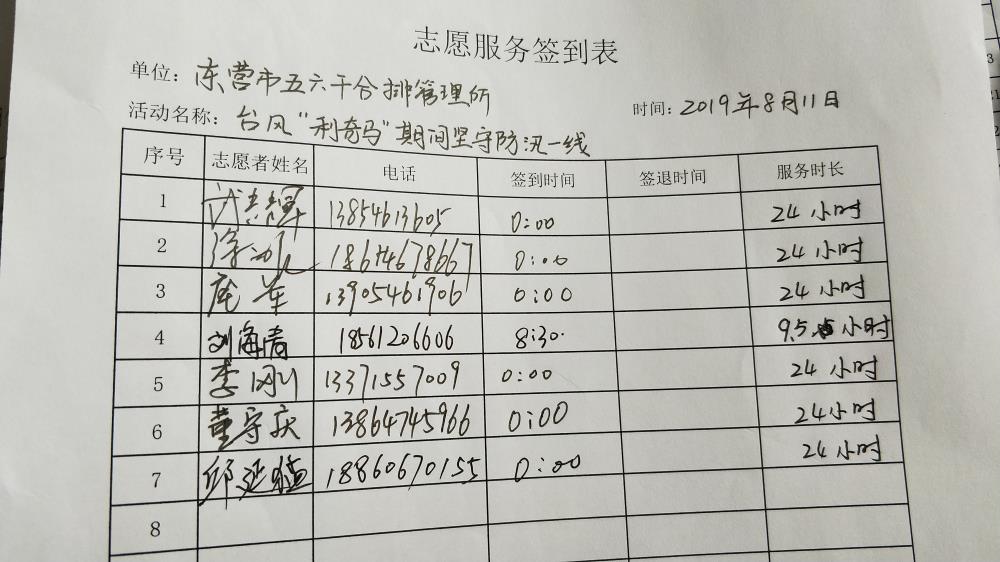 志愿服务签到表
单位：东营市五六干合排管理所
时间：2019年8月11日
活动名称：台风"利奇马"期间坚守防汛一线
序号 志愿者姓名 电话 签到时间 签退时间 服务时长
1 13854613605 0:00 24小时
2 18614678667 0:00 24小时
3 庞军 13905461906 0:00 24小时
4 刘海青 18561206606 8:30 9.5小时
5 李刚 13371557009 0:00 24小时
6 董守庆 13864745966 0:00 24小时
7 18860670155 0:00 24小时
8